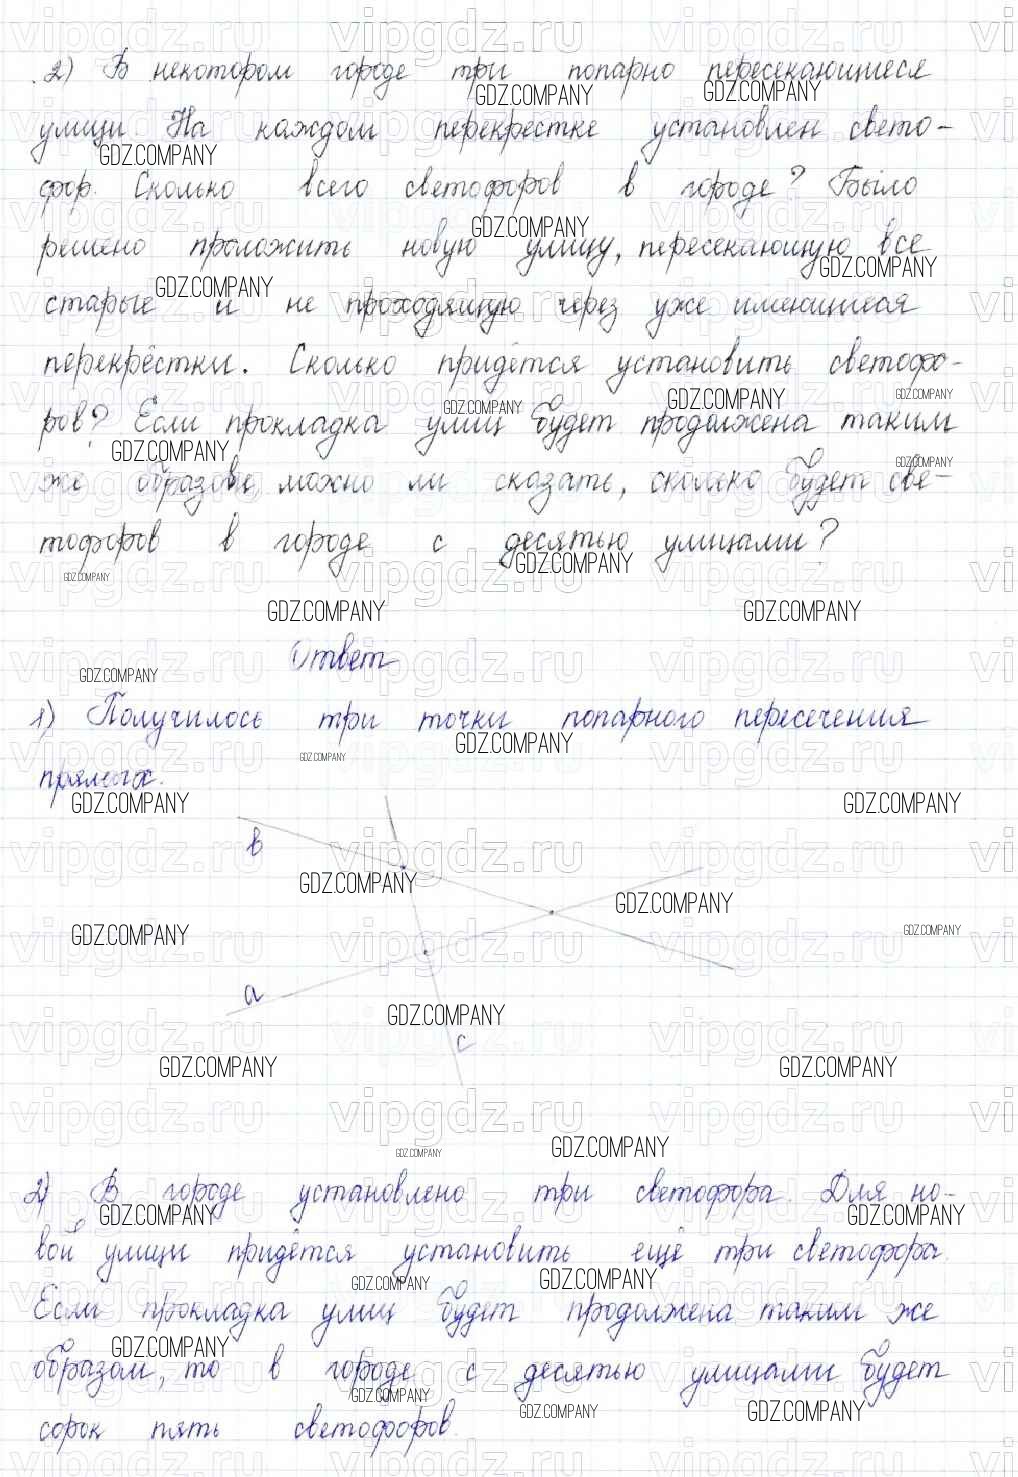 2) В некотором городе три попарно пересекающиеся
улицы. На каждом перекрестке установлен свето-
фор. Сколько всего светофоров в городе? Было
решено проложить новую улицу, пересекающую все
старые и не проходящую через уже имеющиеся
перекрёстки. Сколько придётся установить светофо-
ров? Если прокладка улиц будет продолжена таким
же образом, можно ли сказать, сколько будет све-
тофоров в городе с десятью улицами?
Ответ
1) Получилось три точки попарного пересечения
прямых.
b
a
c
2) В городе установлено три светофора. Для но-
вой улицы придётся установить ещё три светофора.
Если прокладка улиц будет продолжена таким же
образом, то в городе с десятью улицами будет
сорок пять светофоров.
GDZ.COMPANY
vipgdz.ru